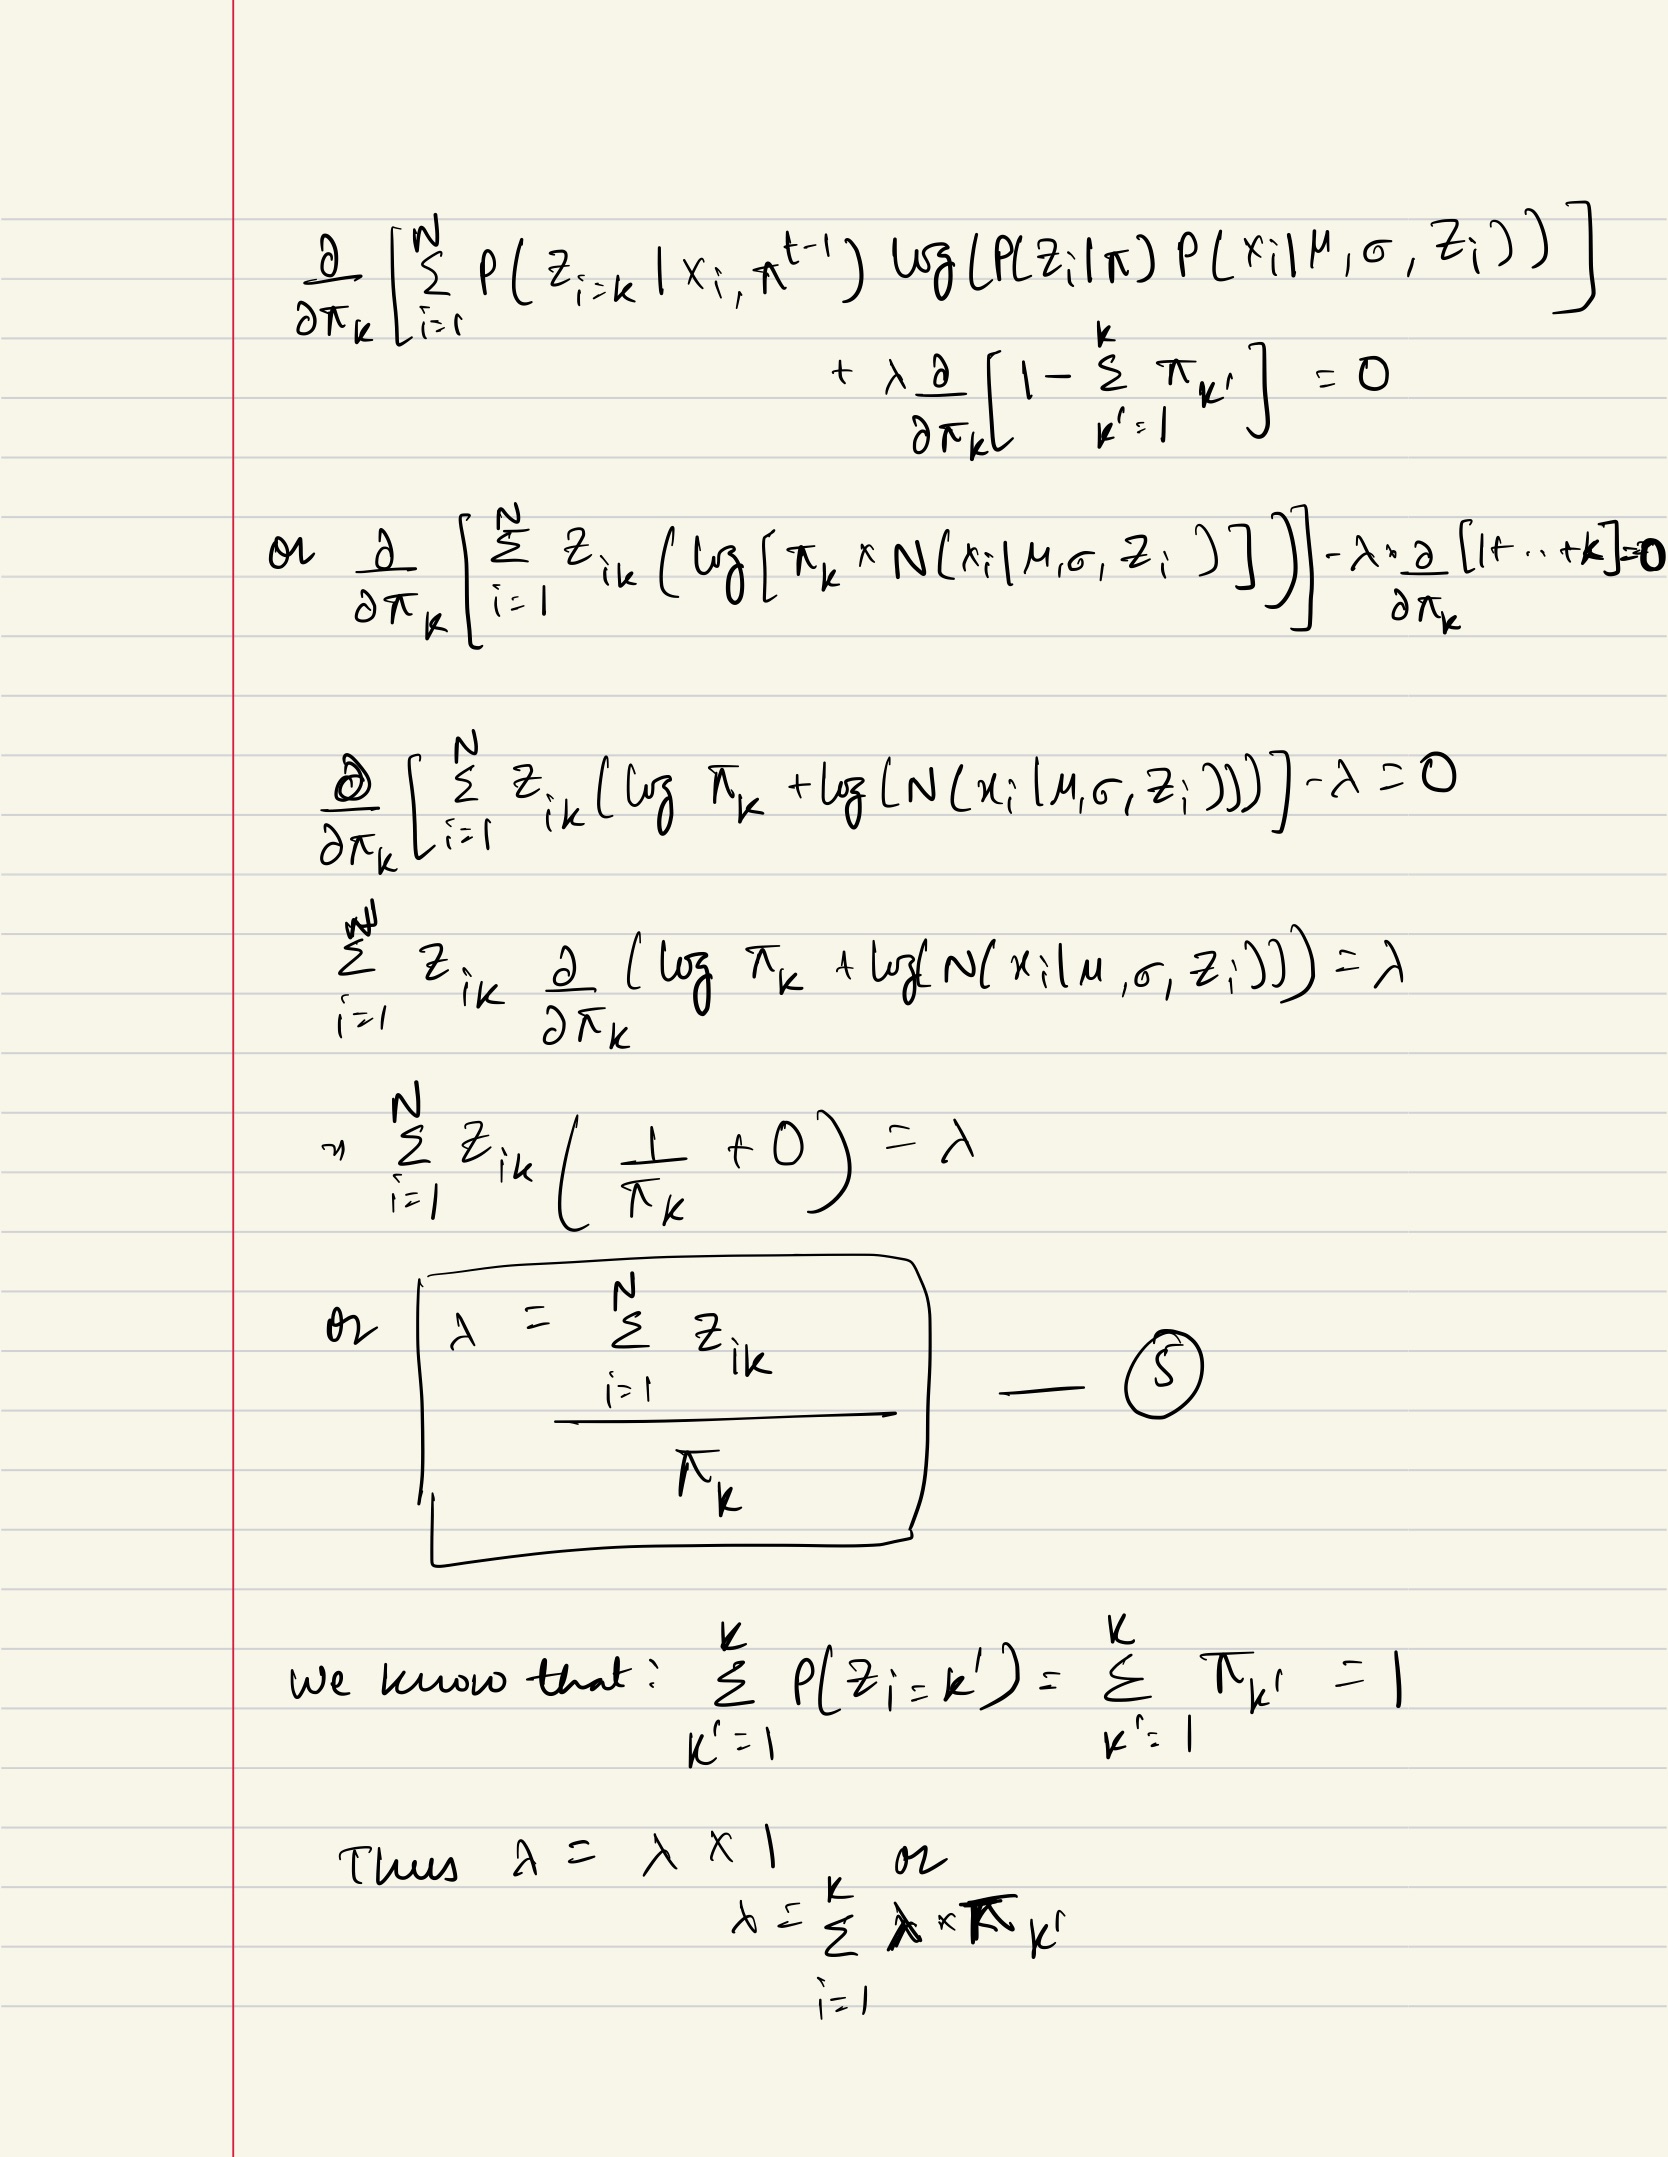 ∂/∂π_k [ Σ_{i=1}^{N} P( z_{i=k} | x_i, π^{t-1} ) log(P(z_i|π) P(x_i|μ, σ, z_i)) ]
+ λ ∂/∂π_k [ 1 - Σ_{k'=1}^{k} π_{k'} ] = 0
or ∂/∂π_k [ Σ_{i=1}^{N} z_{ik} ( log[ π_k × N(x_i|μ,σ, z_i ) ] ) ] - λ × ∂/∂π_k [1+..+k]=0
∂/∂π_k [ Σ_{i=1}^{N} z_{ik} (log π_k + log(N(x_i|μ,σ,z_i))) ] - λ = 0
Σ_{i=1}^{N} z_{ik} ∂/∂π_k (log π_k + log(N(x_i|μ,σ, z_i))) = λ
Σ_{i=1}^{N} z_{ik} ( 1/π_k + 0 ) = λ
or λ = Σ_{i=1}^{N} z_{ik} / π_k — ⑤
We know that: Σ_{k'=1}^{K} P(z_{i=k'}) = Σ_{k'=1}^{K} π_{k'} = 1
Thus λ = λ × 1 or
λ = Σ_{i=1}^{K} λ × π_{k'}